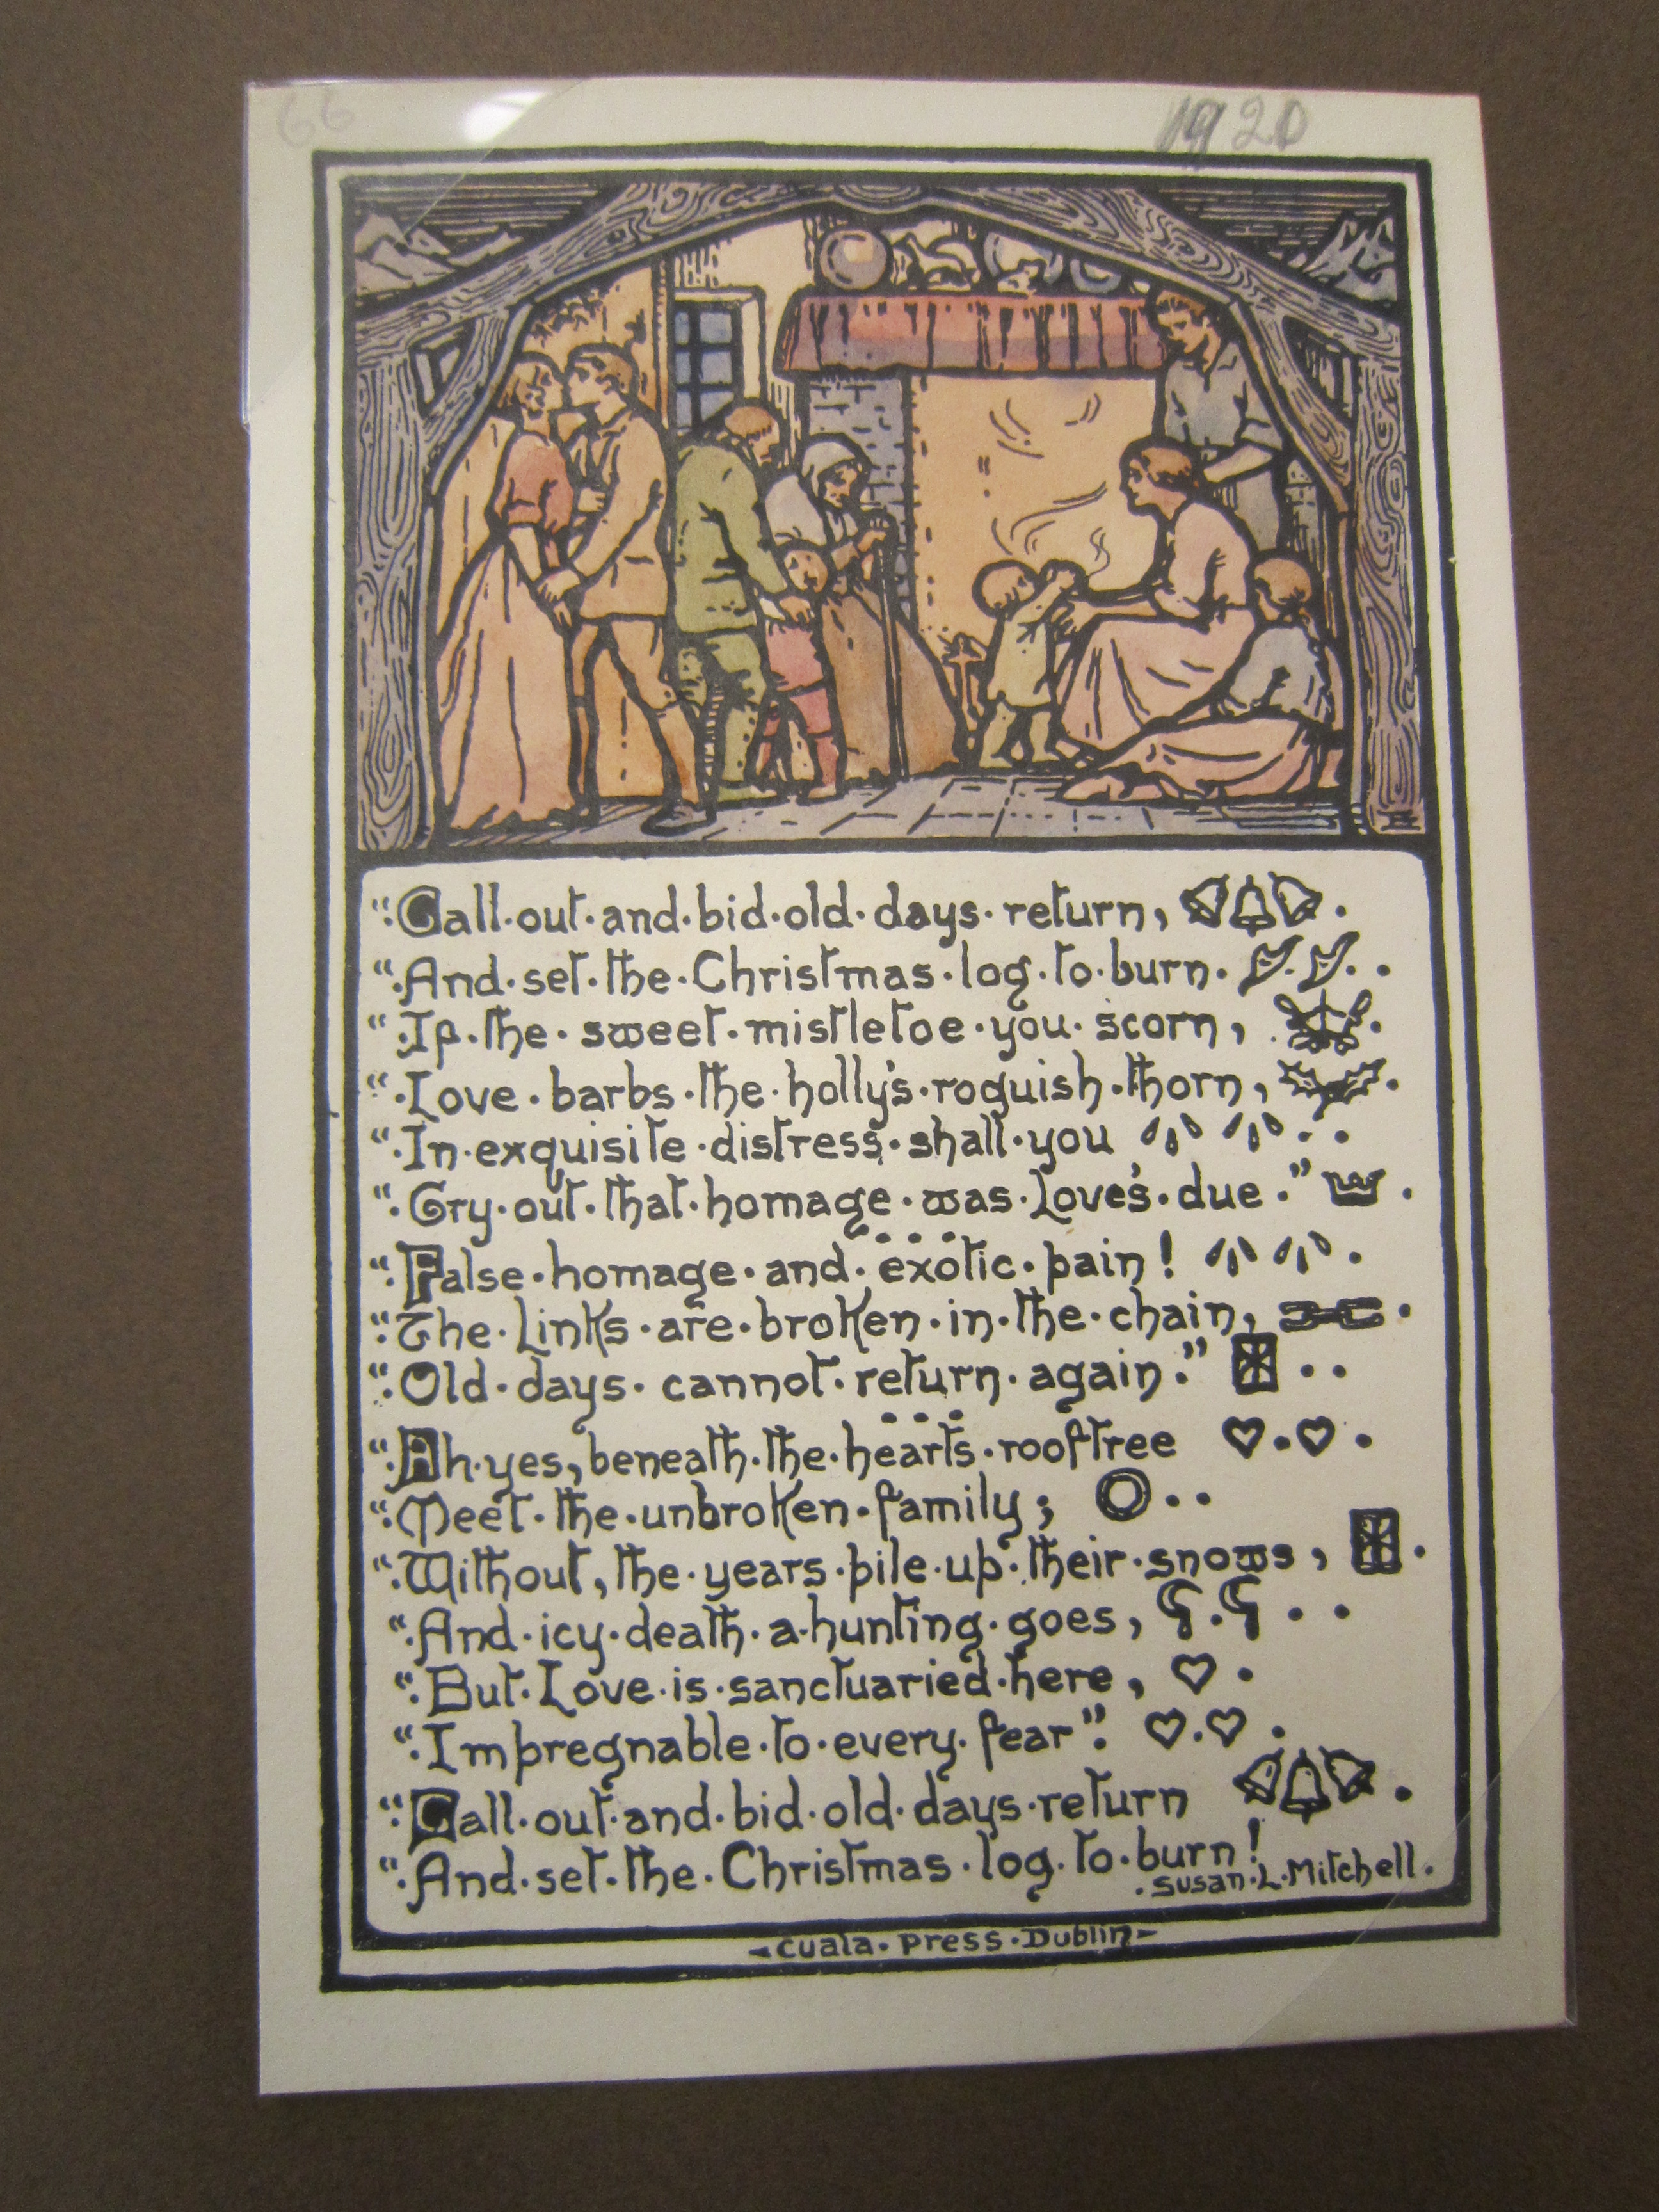 66
1920
"Call·out·and·bid·old·days·return,
"·And·set·the·Christmas·log·to·burn·
"·If·the·sweet·mistletoe·you·scorn,
"·Love·barbs·the·holly's·roguish·thorn,
"·In·exquisite·distress·shall·you
"·Cry·out·that·homage·was·Love's·due·"
"·False·homage·and·exotic·pain!
"·The·Links·are·broken·in·the·chain,
"·Old·days·cannot·return·again·"
"·Ah·yes, beneath·the·hearts·rooftree
"·Meet·the·unbroken·family;
"·Without, the·years·pile·up·their·snows,
"·And·icy·death·a·hunting·goes,
"·But·Love·is·sanctuaried·here,
"·Impregnable·to·every·fear"·
"·Call·out·and·bid·old·days·return
"·And·set·the·Christmas·log·to·burn!
·Susan·L·Mitchell·
-Cuala·Press·Dublin-